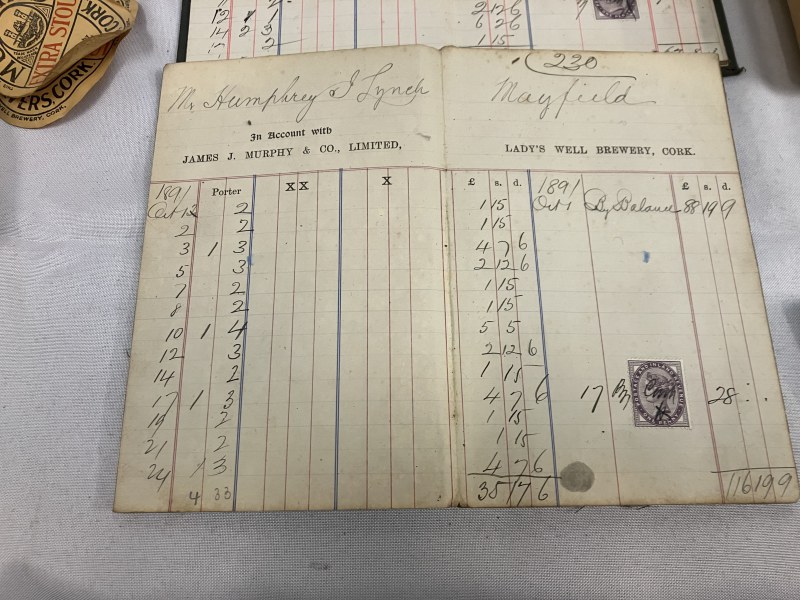 EXTRA STOUT
CORK
WELL BREWERY, CORK.
12 1
14 2 3
2
2 12 6
6 2 6
1 15
230
Mr Humphrey J Lynch
Mayfield
In Account with
JAMES J. MURPHY & CO., LIMITED,
LADY'S WELL BREWERY, CORK.
1891 Porter XX X £ s. d. 1891 £ s. d.
Oct 12 2 1 15 Oct 1 By Balance 88 19 9
2 2 1 15
3 1 3 4 7 6
5 3 2 12 6
7 2 1 15
8 2 1 15
10 1 4 5 5
12 3 2 12 6
14 2 1 15
17 1 3 4 7 6 17 By Cash 28
19 2 1 15
21 2 1 15
24 1 3 4 7 6
4 33 35 17 6 116 19 9
POSTAGE AND INLAND REVENUE